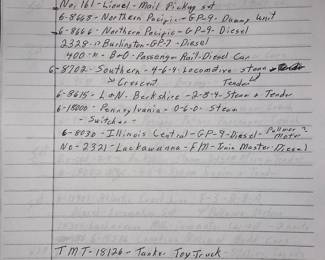 No. 161 - Lionel - Mail Pickup set
6-8665 - Northern Pacific - GP-9 - Dummy Unit
6-8666 - Northern Pacific - GP-9 - Diesel
2328 - Burlington - GP-7 - Diesel
400 - B+O - Passenger Rail-Diesel Car
6-8702 - Southern - 4-6-4 - Locomotive Steam
Crescent Tender
6-8615 - L+N. Berkshire - 2-8-4 - Steam + Tender
6-18000 - Pennsylvania - 0-6-0 - Steam
- Switcher -
6-8030 - Illinois Central - GP-9 - Diesel -
No-2321 - Lackawanna - FM - Train Master - Diesel
TMT-18126 - Tanker Toy Truck -